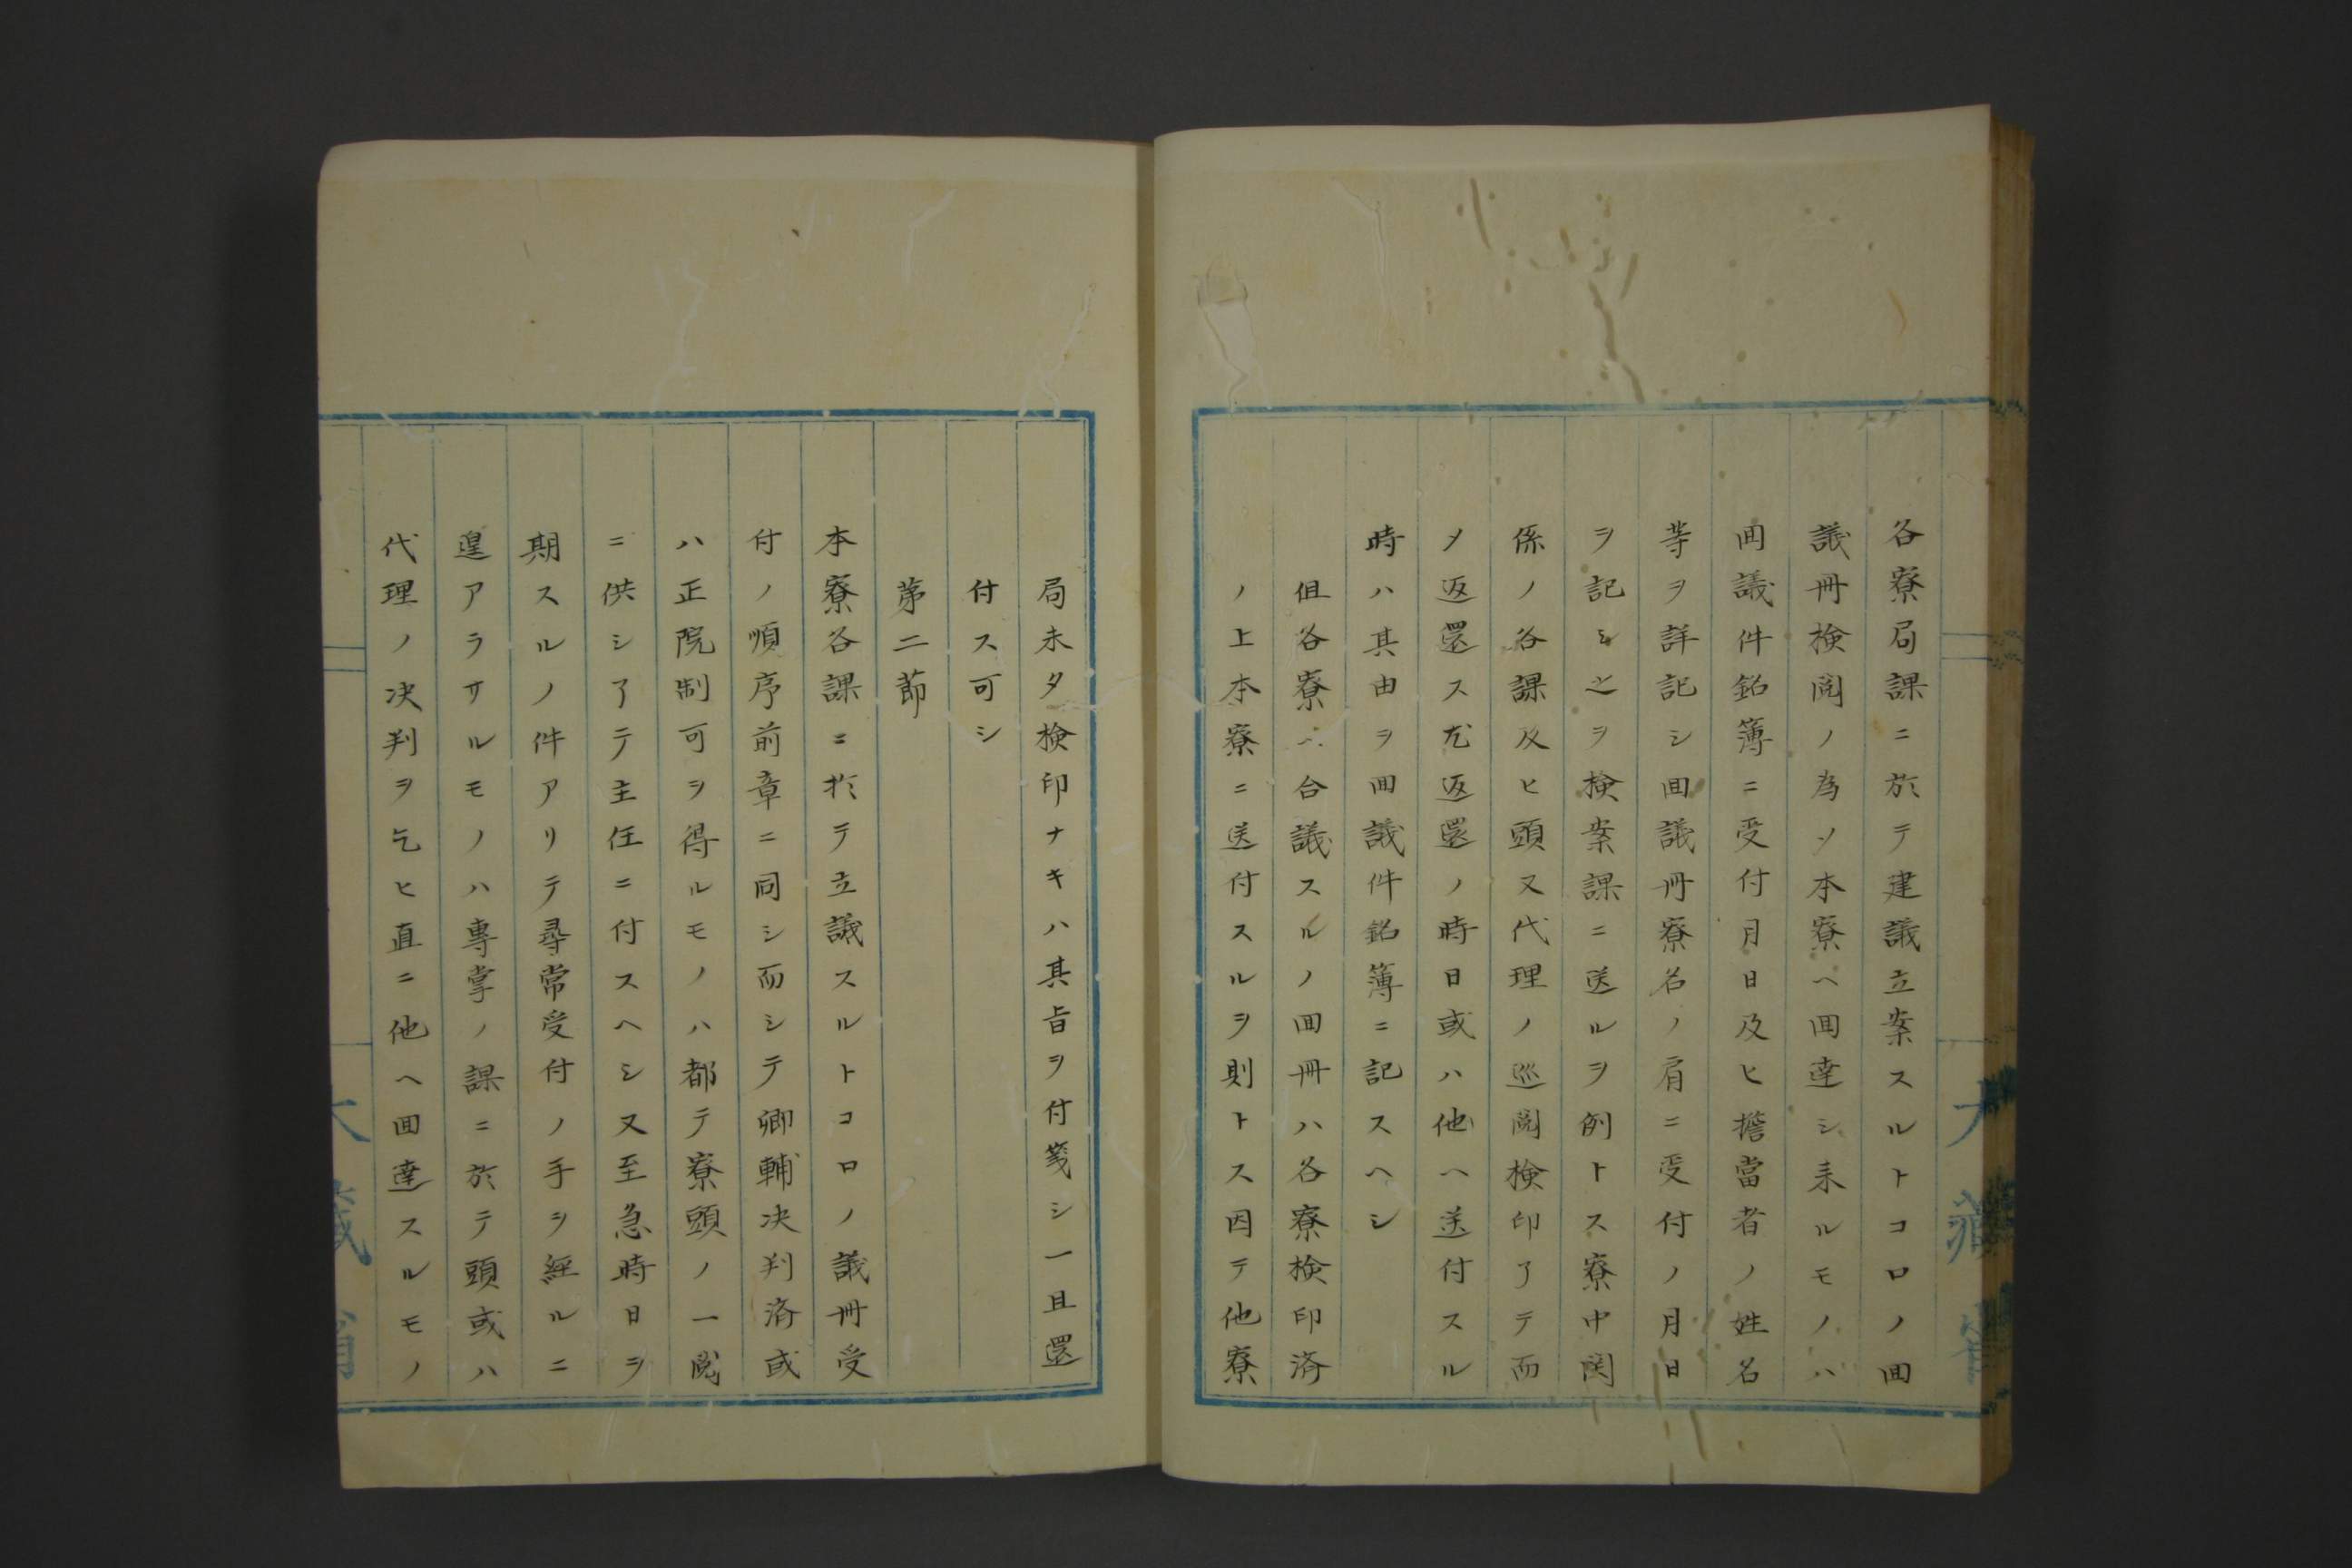 各寮局課ニ於テ建議立案スルトコロノ囬
議冊検閲ノ為メ本寮ヘ囬達シ来ルモノハ
囬議件銘簿ニ受付月日及ヒ擔當者ノ姓名
等ヲ詳記シ囬議冊寮名ノ肩ニ受付ノ月日
ヲ記シ之ヲ検案課ニ送ルヲ例トス寮中関
係ノ各課及ヒ頭又代理ノ巡閲検印了テ而
メ返還ス尤返還ノ時日或ハ他ヘ送付スル
時ハ其由ヲ囬議件銘簿ニ記スヘシ
但各寮ヘ合議スルノ囬冊ハ各寮検印済
ノ上本寮ニ送付スルヲ則トス因テ他寮
局未タ検印ナキハ其旨ヲ付箋シ一旦還
付ス可シ
第二節
本寮各課ニ於テ立議スルトコロノ議冊受
付ノ順序前章ニ同シ而シテ卿輔决判済或
ハ正院制可ヲ得ルモノハ都テ寮頭ノ一閲
ニ供シ了テ主任ニ付スヘシ又至急時日ヲ
期スルノ件アリテ尋常受付ノ手ヲ経ルニ
遑アラサルモノハ專掌ノ課ニ於テ頭或ハ
代理ノ决判ヲ乞ヒ直ニ他ヘ囬達スルモノ
大藏省
大藏省